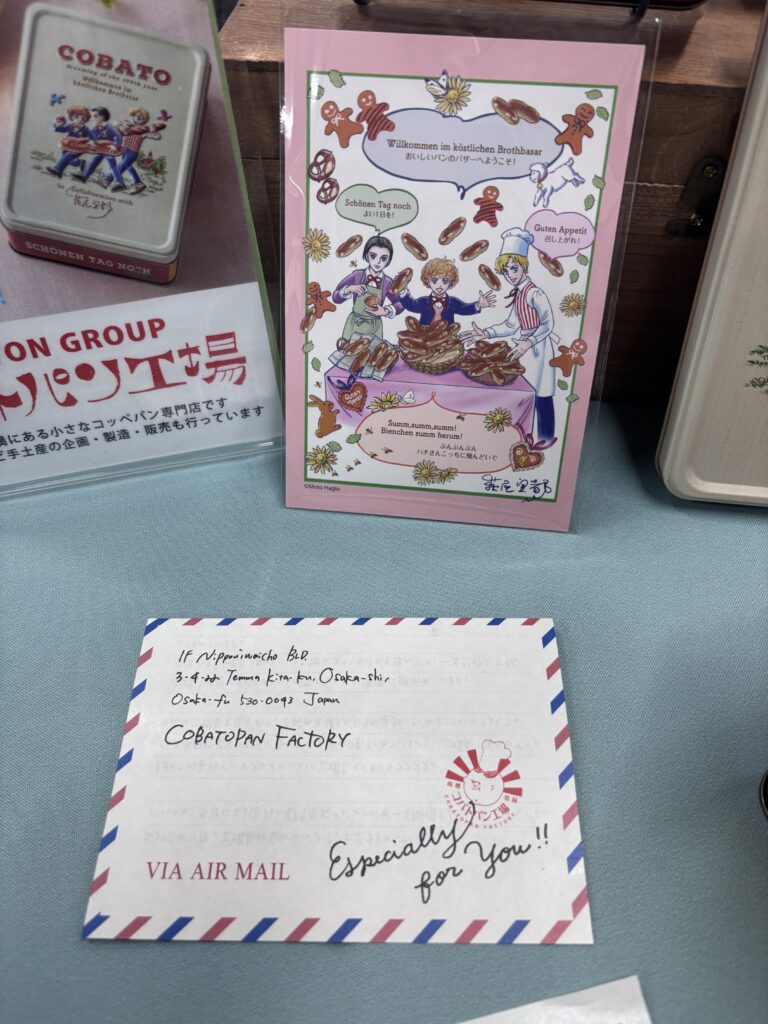 COBATO
Willkommen im
köstlichen Brothbasar
in Collaboration with
SCHÖNEN TAG NOCH
ON GROUP
トパン工場
にある小さなコッペパン専門店です
手土産の企画・製造・販売も行っています
Willkommen im köstlichen Brothbasar
おいしいパンのバザーへようこそ!
Schönen Tag noch
よい1日を!
Guten Appetit
召し上がれ!
Summ,summ,summ!
Bienchen summ herum!
ぶんぶんぶん
ハチさんこっちに飛んどいで
©Moto Hagio
萩尾望都
1F Nipponiwaicho BLD.
3-4-22 Temma Kita-ku, Osaka-shi,
Osaka-fu 530-0043 Japan
COBATOPAN FACTORY
コバトパン工場
COBATOPAN FACTORY
VIA AIR MAIL
Especially
for You!!